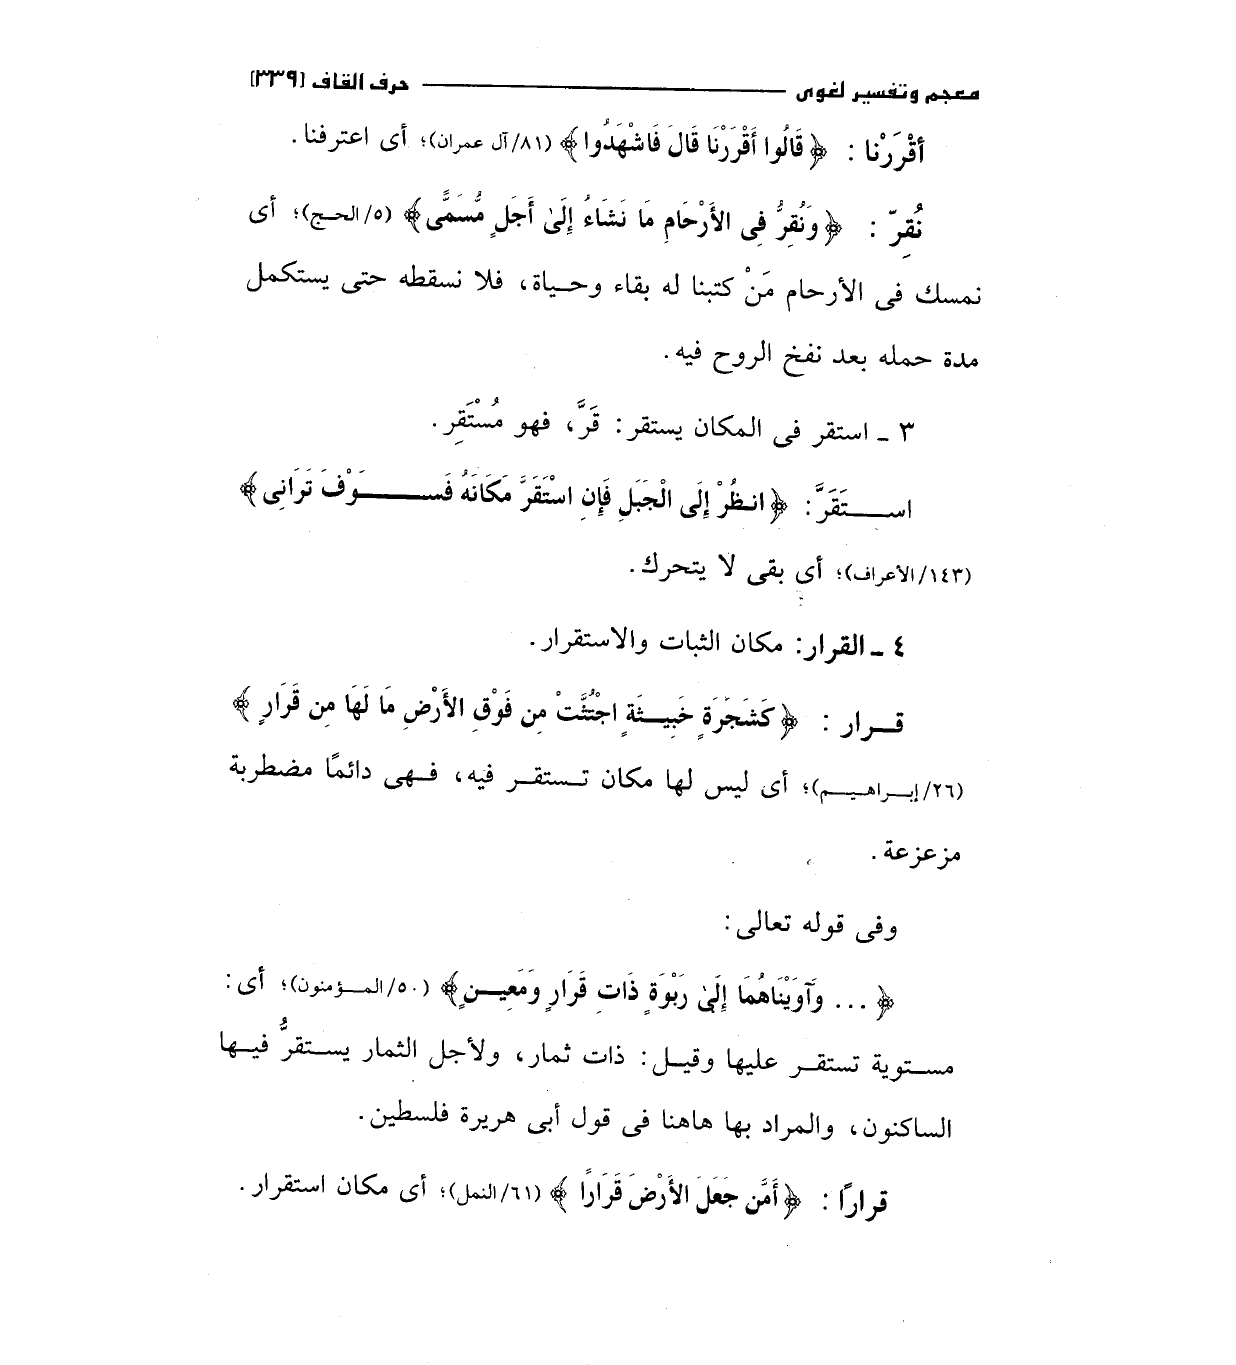 معجم وتفسير لغوى حرف القاف [٣٣٩]
أقْرَرْنا : ﴿قَالُوا أَقْرَرْنَا قَالَ فَاشْهَدُوا﴾ (٨١/آل عمران)؛ أى اعترفنا.
نُقِرّ : ﴿وَنُقِرُّ فِى الأَرْحَامِ مَا نَشَاءُ إِلَىٰ أَجَلٍ مُّسَمًّى﴾ (٥/الحج)؛ أى
نمسك فى الأرحام مَنْ كتبنا له بقاء وحياة، فلا نسقطه حتى يستكمل
مدة حمله بعد نفخ الروح فيه.
٣ ـ استقر فى المكان يستقر: قَرَّ، فهو مُسْتَقِر.
استَقَرَّ: ﴿انظُرْ إِلَى الْجَبَلِ فَإِنِ اسْتَقَرَّ مَكَانَهُ فَسَوْفَ تَرَانِى﴾
(١٤٣/الأعراف)؛ أى بقى لا يتحرك.
٤ ـ القرار: مكان الثبات والاستقرار.
قرار : ﴿كَشَجَرَةٍ خَبِيثَةٍ اجْتُثَّتْ مِن فَوْقِ الأَرْضِ مَا لَهَا مِن قَرَارٍ﴾
(٢٦/إبراهيم)؛ أى ليس لها مكان تستقر فيه، فهى دائمًا مضطربة
مزعزعة.
وفى قوله تعالى:
﴿... وَآوَيْنَاهُمَا إِلَىٰ رَبْوَةٍ ذَاتِ قَرَارٍ وَمَعِينٍ﴾ (٥٠/المؤمنون)؛ أى:
مستوية تستقر عليها وقيل: ذات ثمار، ولأجل الثمار يستقرُّ فيها
الساكنون، والمراد بها هاهنا فى قول أبى هريرة فلسطين.
قرارًا : ﴿أَمَّن جَعَلَ الأَرْضَ قَرَارًا﴾ (٦١/النمل)؛ أى مكان استقرار.